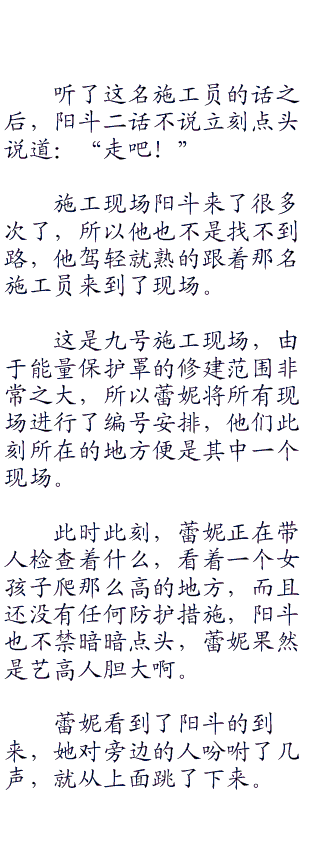 听了这名施工员的话之
后，阳斗二话不说立刻点头
说道：“走吧！”
施工现场阳斗来了很多
次了，所以他也不是找不到
路，他驾轻就熟的跟着那名
施工员来到了现场。
这是九号施工现场，由
于能量保护罩的修建范围非
常之大，所以蕾妮将所有现
场进行了编号安排，他们此
刻所在的地方便是其中一个
现场。
此时此刻，蕾妮正在带
人检查着什么，看着一个女
孩子爬那么高的地方，而且
还没有任何防护措施，阳斗
也不禁暗暗点头，蕾妮果然
是艺高人胆大啊。
蕾妮看到了阳斗的到
来，她对旁边的人吩咐了几
声，就从上面跳了下来。